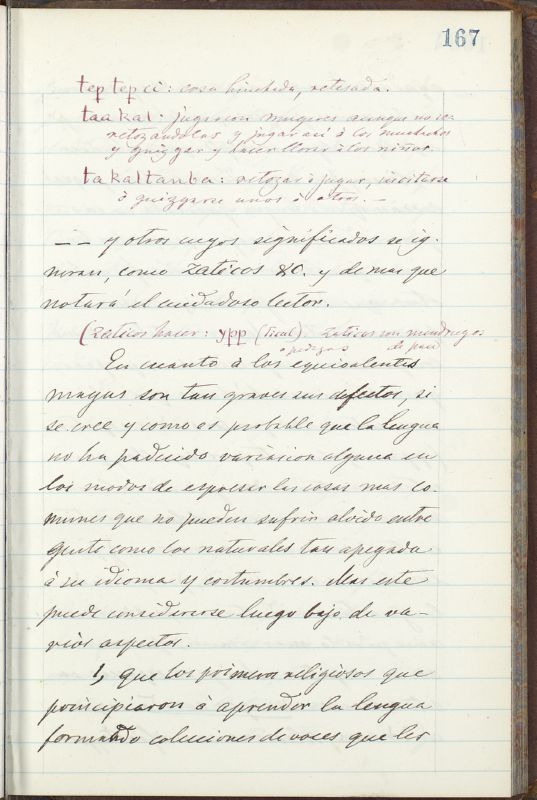 167
tep tep ci: cosa hinchada, retesada.
taakal: jugar con mugeres aunque no sea
retozandolas y jugar así á los muchachos
y guizgar y hacer llorar á los niños.
takaltanba: retozar ó jugar, incitarse
ó guizgarse unos á otros. —
—— y otros cuyos significados se ig-
noran, como Zaticos &C. y demas que
notará el cuidadoso lector.
(Zaticos hacer: ypp (Ticul) Zaticos son mendrugos
ó pedazos de pan
En cuanto á los equivalentes
mayas son tan graves sus defectos, si
se cree y como es probable que la lengua
no ha padecido variacion alguna en
los modos de espresar las cosas mas co-
munes que no pueden sufrir olvido entre
gente como los naturales tan apegada
á su idioma y costumbres. Mas este
puede considerarse luego bajo de va-
rios aspectos.
1, que los primeros religiosos que
principiaron á aprender la lengua
formando colecciones de voces que les